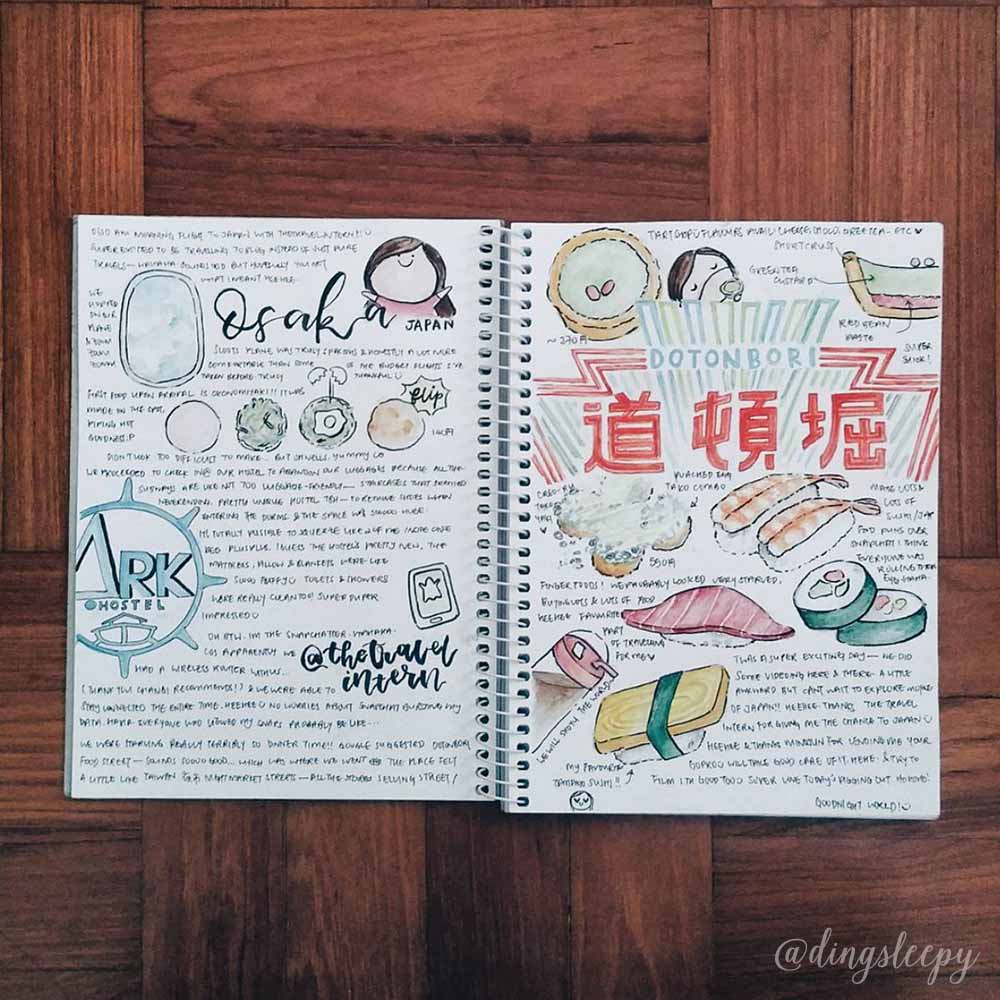 MORNING FLIGHT TO JAPAN WITH
SUPER EXCITED TO BE TRAVELING TO INSTEAD OF JUST PURE
TRAVELS — HAHAHA BUT HOPEFULLY YOU GET
WHAT I MEANT HEEHEE
WE
ON OUR
PLANE
Osaka
JAPAN
SCOOTS PLANE WAS TRULY SPACIOUS & HONESTLY A LOT MORE
COMFORTABLE THAN SOME OF THE BUDGET FLIGHTS I'VE
TAKEN BEFORE. TRULY THANKFUL
FIRST FOOD UPON ARRIVAL IS OKONOMIYAKI!!! IT WAS
MADE ON THE SPOT,
PIPING HOT
GOODNESS :P
flip
DIDN'T LOOK TOO DIFFICULT TO MAKE... BUT OH WELLS. YUMMY
WE PROCEEDED TO CHECK IN @ OUR HOSTEL TO ABANDON OUR LUGGAGES BECAUSE ALL THE
SUBWAYS ARE LIKE NOT TOO LUGGAGE-FRIENDLY — STAIRCASES THAT SEEMED
NEVERENDING. PRETTY UNIQUE HOSTEL TBH — TO REMOVE SHOES WHEN
ENTERING THE DORMS & THE SPACE WAS
TOTALLY POSSIBLE TO SQUEEZE LIKE MORE ONE
BED I GUESS THE HOSTEL'S PRETTY NEW, THE
MATTRESS, PILLOW & BLANKETS WERE LIKE
TOILETS & SHOWERS
WERE REALLY CLEAN TOO! SUPER DUPER
IMPRESSED
ARK
HOSTEL
OH BTW, IM THE SNAPCHATTER. HAHAHA.
COS APPARENTLY WE
@thetravel
intern
HAD A WIRELESS ROUTER WITH US...
(THANK YOU CHANGI RECOMMENDS!) & WE WERE ABLE TO
STAY CONNECTED THE ENTIRE TIME. HEEHEE NO WORRIES ABOUT SNAPCHAT BURSTING MY
DATA. HAHA. EVERYONE WHO VIEWED MY SNAPS PROBABLY BE LIKE...
WE WERE STARVING REALLY TERRIBLY SO DINNER TIME!! GOOGLE SUGGESTED DOTONBORI
FOOD STREET — SOUNDS SOOOO GOOD... WHICH WAS WHERE WE WENT THE PLACE FELT
A LITTLE LIKE TAIWAN NIGHT MARKET STREETS — ALL THE STORES SELLING STREET!
TART FLAVOURS AVAIL: CHEESE, GREEN TEA - ETC
SHORTCRUST
GREEN TEA
CUSTARD
RED BEAN
PASTE
SUPER
~270円
DOTONBORI
道頓堀
POACHED EGG
TAKO COMBO
MADE LOTS &
LOTS OF
SUSHI
FOOD RUNS OVER
SNAPCHAT I THINK
EVERYONE WAS
ROLLING THEIR
EYES HAHA.
FINGER FOODS! WE PROBABLY LOOKED VERY STARVED,
BUYING LOTS & LOTS OF FOOD
HEEHEE FAVOURITE
PART
OF TRAVELING
FOR ME
WE WILL SHOW THE WORLD
MY FAVOURITE
TAMAGO SUSHI!!
TWAS A SUPER EXCITING DAY — WE DID
SOME VIDEOING HERE & THERE - A LITTLE
AWKWARD BUT CAN'T WAIT TO EXPLORE MORE
OF JAPAN!! HEEHEE THANKS THE TRAVEL
INTERN FOR GIVING ME THE CHANCE TO JAPAN
HEEHEE & THANKS FOR LENDING ME YOUR
GOPRO WILL TAKE GOOD CARE OF IT. HEHE & TRY TO
FILM
GOODNIGHT WORLD!
@dingsleepy